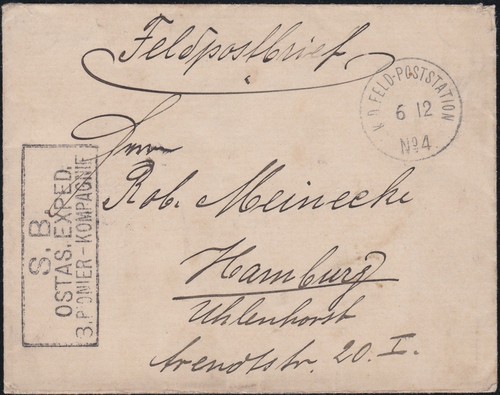 Feldpostbrief
K. D. FELD-POSTSTATION
6 12
No 4.
Herrn
Rob. Meinecke
Hamburg
Uhlenhorst
Arendtstr. 20. I.
S. B.
OSTAS. EXPED.
3. PIONIER-KOMPAGNIE